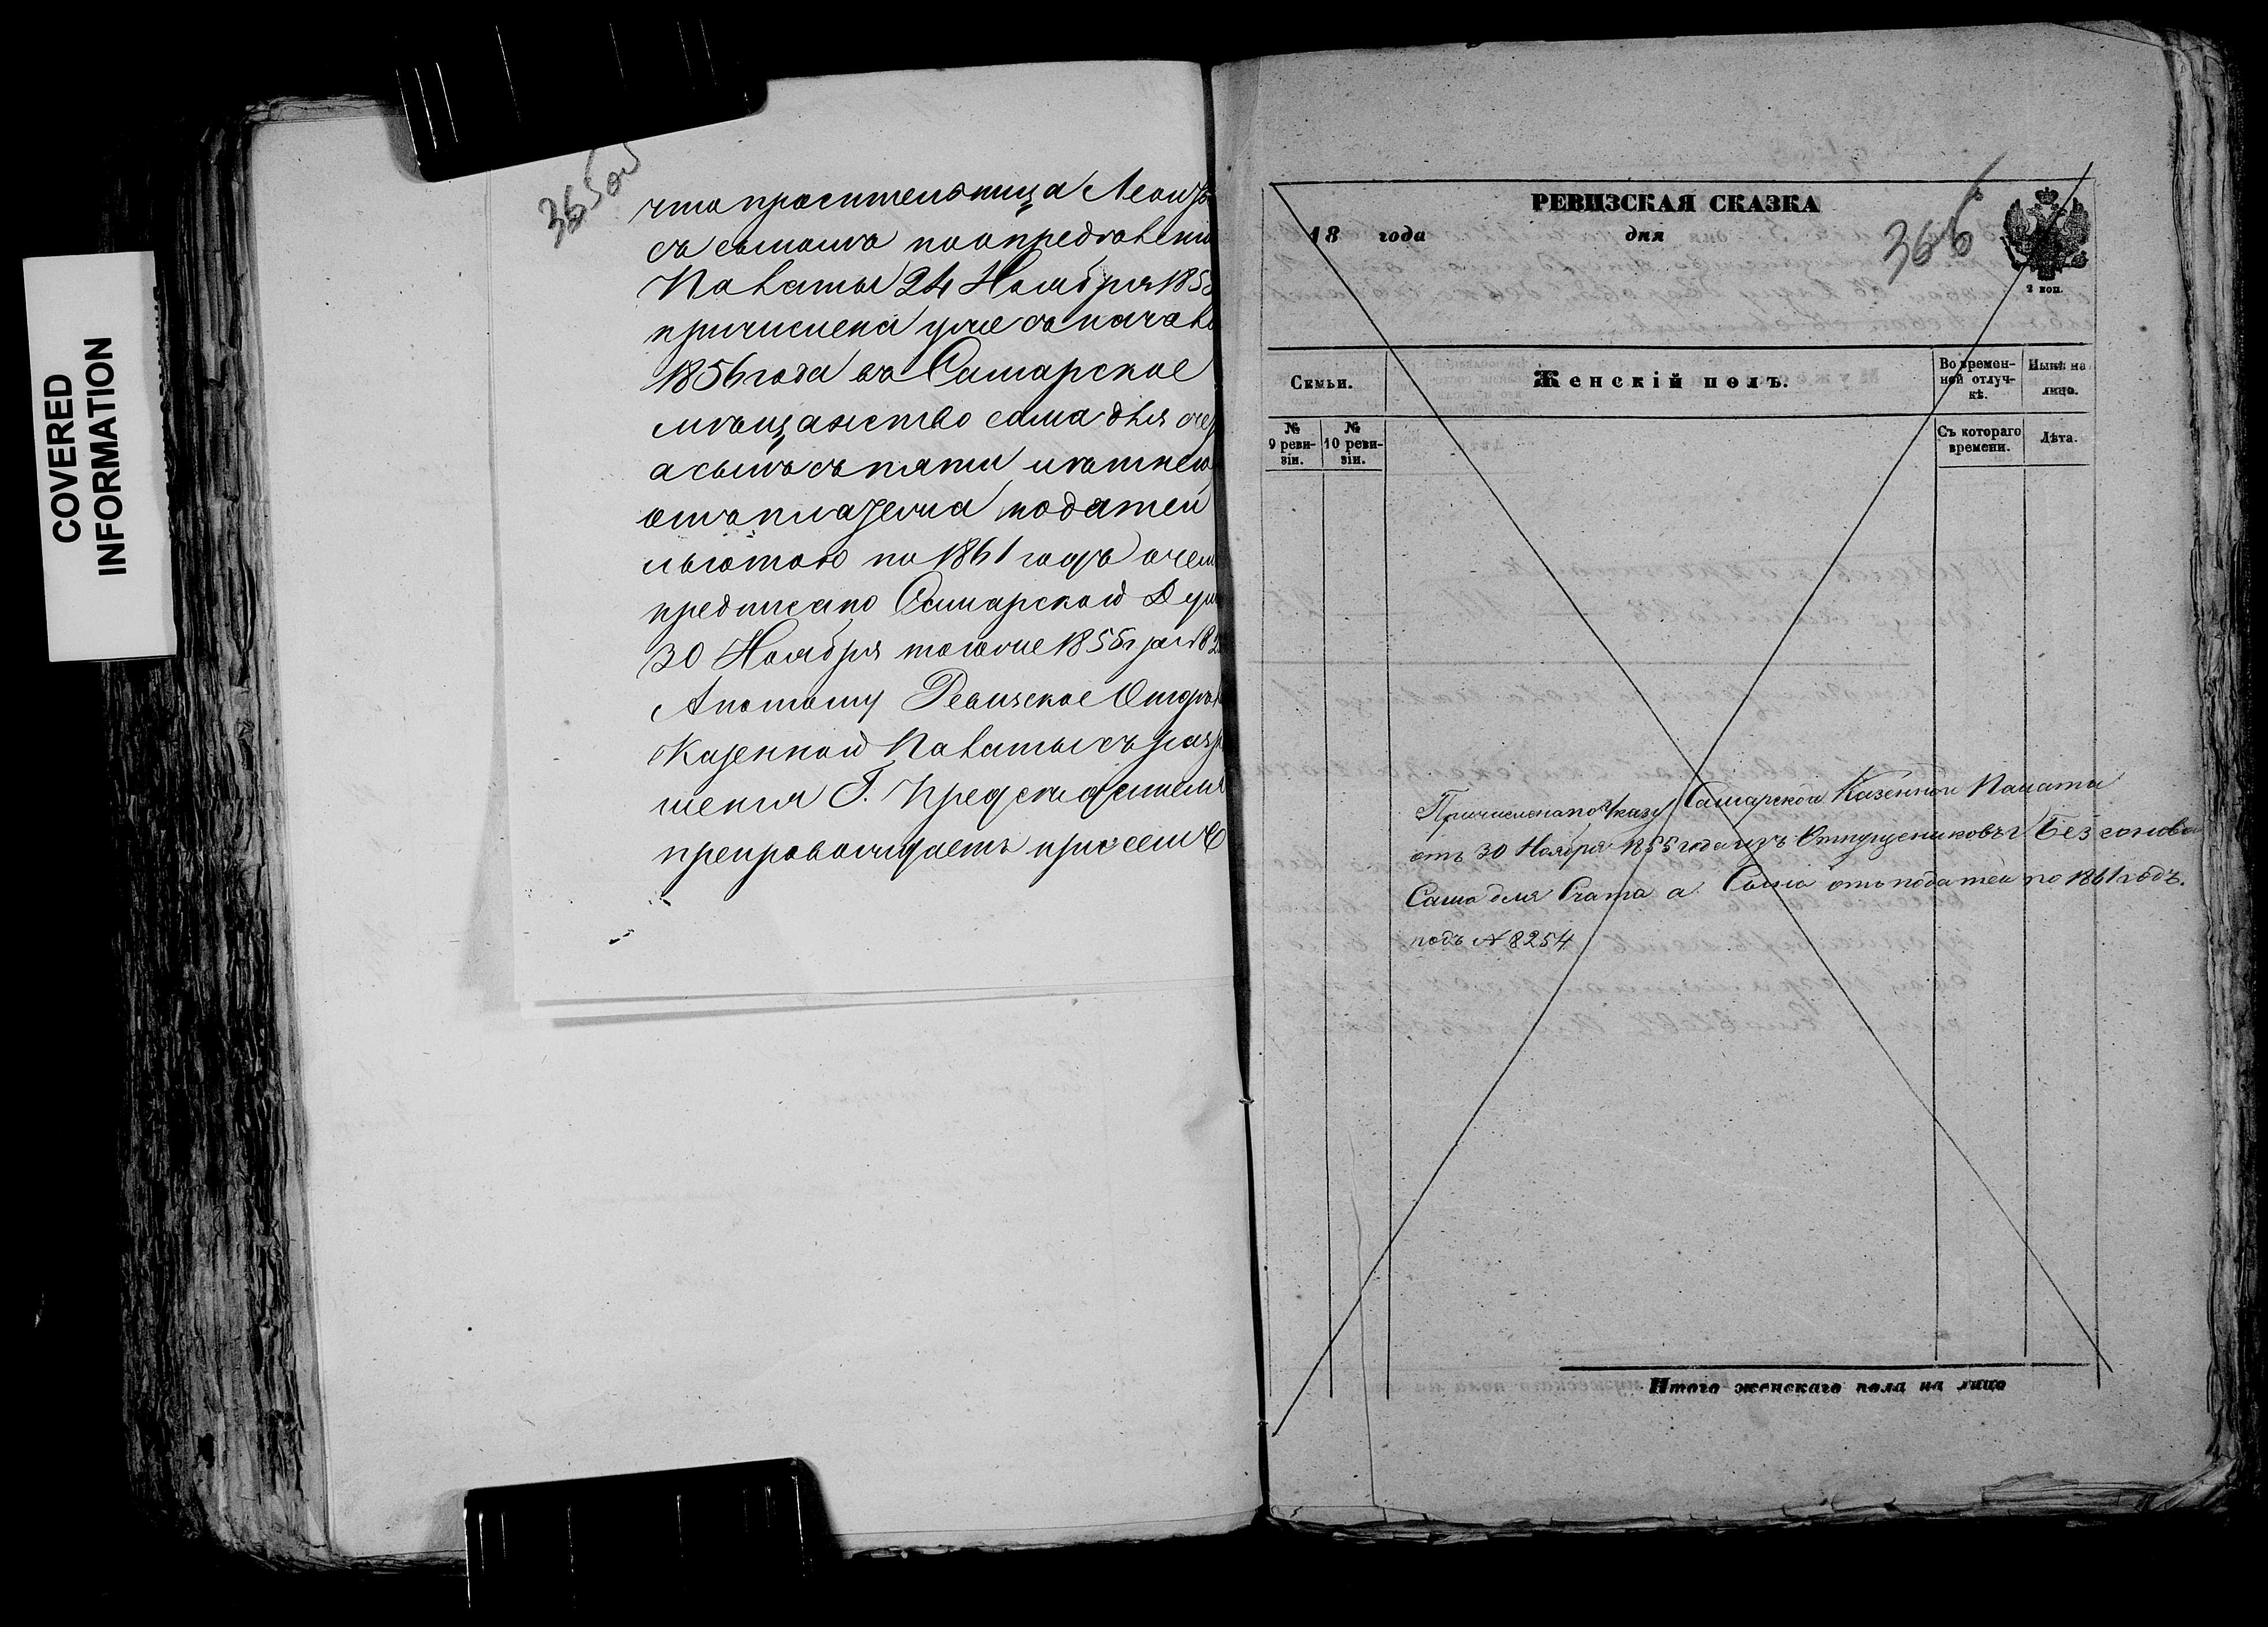 COVERED
INFORMATION
365об
что просительница Леонть
съ сыномъ по опредѣлени
Палаты 24 Ноября 185
причислена уже съ начала
1856 года въ Самарское
мѣщанство сама для сче
а сынъ съ пяти лѣтнею
отъ платежа податей
льготою по 1861 годъ о чем
предписано Самарской Дум
30 Ноября того же 1855 г за № 82
А потому Ревизское Отдѣл
Казенной Палаты съ разрѣ
шенія Г. Предсѣдателя
препровождаетъ при семъ
366
РЕВИЗСКАЯ СКАЗКА
18 года дня
2 коп.
Семьи.
Женскій полъ.
Во времен-
ной отлуч-
кѣ.
Нынѣ на
лицо.
№
9 реви-
зіи.
№
10 реви-
зіи.
Съ котораго
времени.
Лѣта.
Причислена по Указу Самарской Казенной Палаты
отъ 30 Ноября 1855 года изъ Отпущениковъ
Сама для Счата а Сынъ отъ податей по 1861 годъ.
подъ № 8254
Итого женскаго пола на лицо